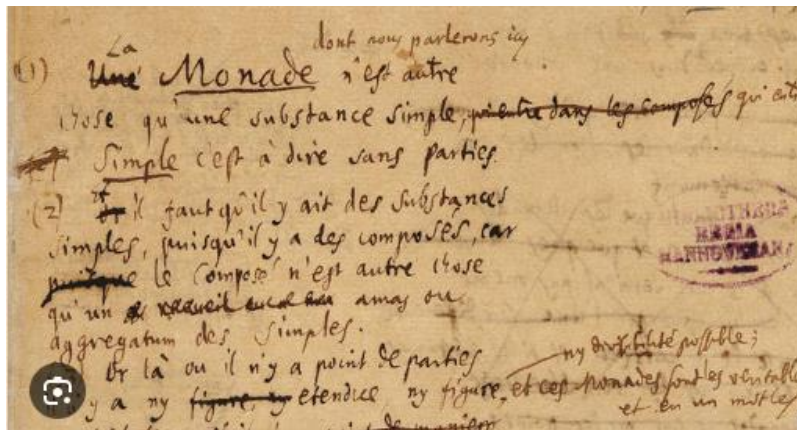 dont nous parlerons icy
La
(1) Une Monade n'est autre
chose qu'une substance simple, qui entre dans les composés qui
Simple c'est à dire sans parties.
(2) Et il faut qu'il y ait des substances
simples, puisqu'il y a des composés, car
puisque le Composé n'est autre chose
qu'un recueil amas ou
aggregatum des simples.
Or là ou il n'y a point de parties
ny divisibilité possible;
y a ny figure, ny etendue, ny figure, et ces Monades sont les
et en un mot les
BIBLIOTHECA
REGIA
HANNOVERANA